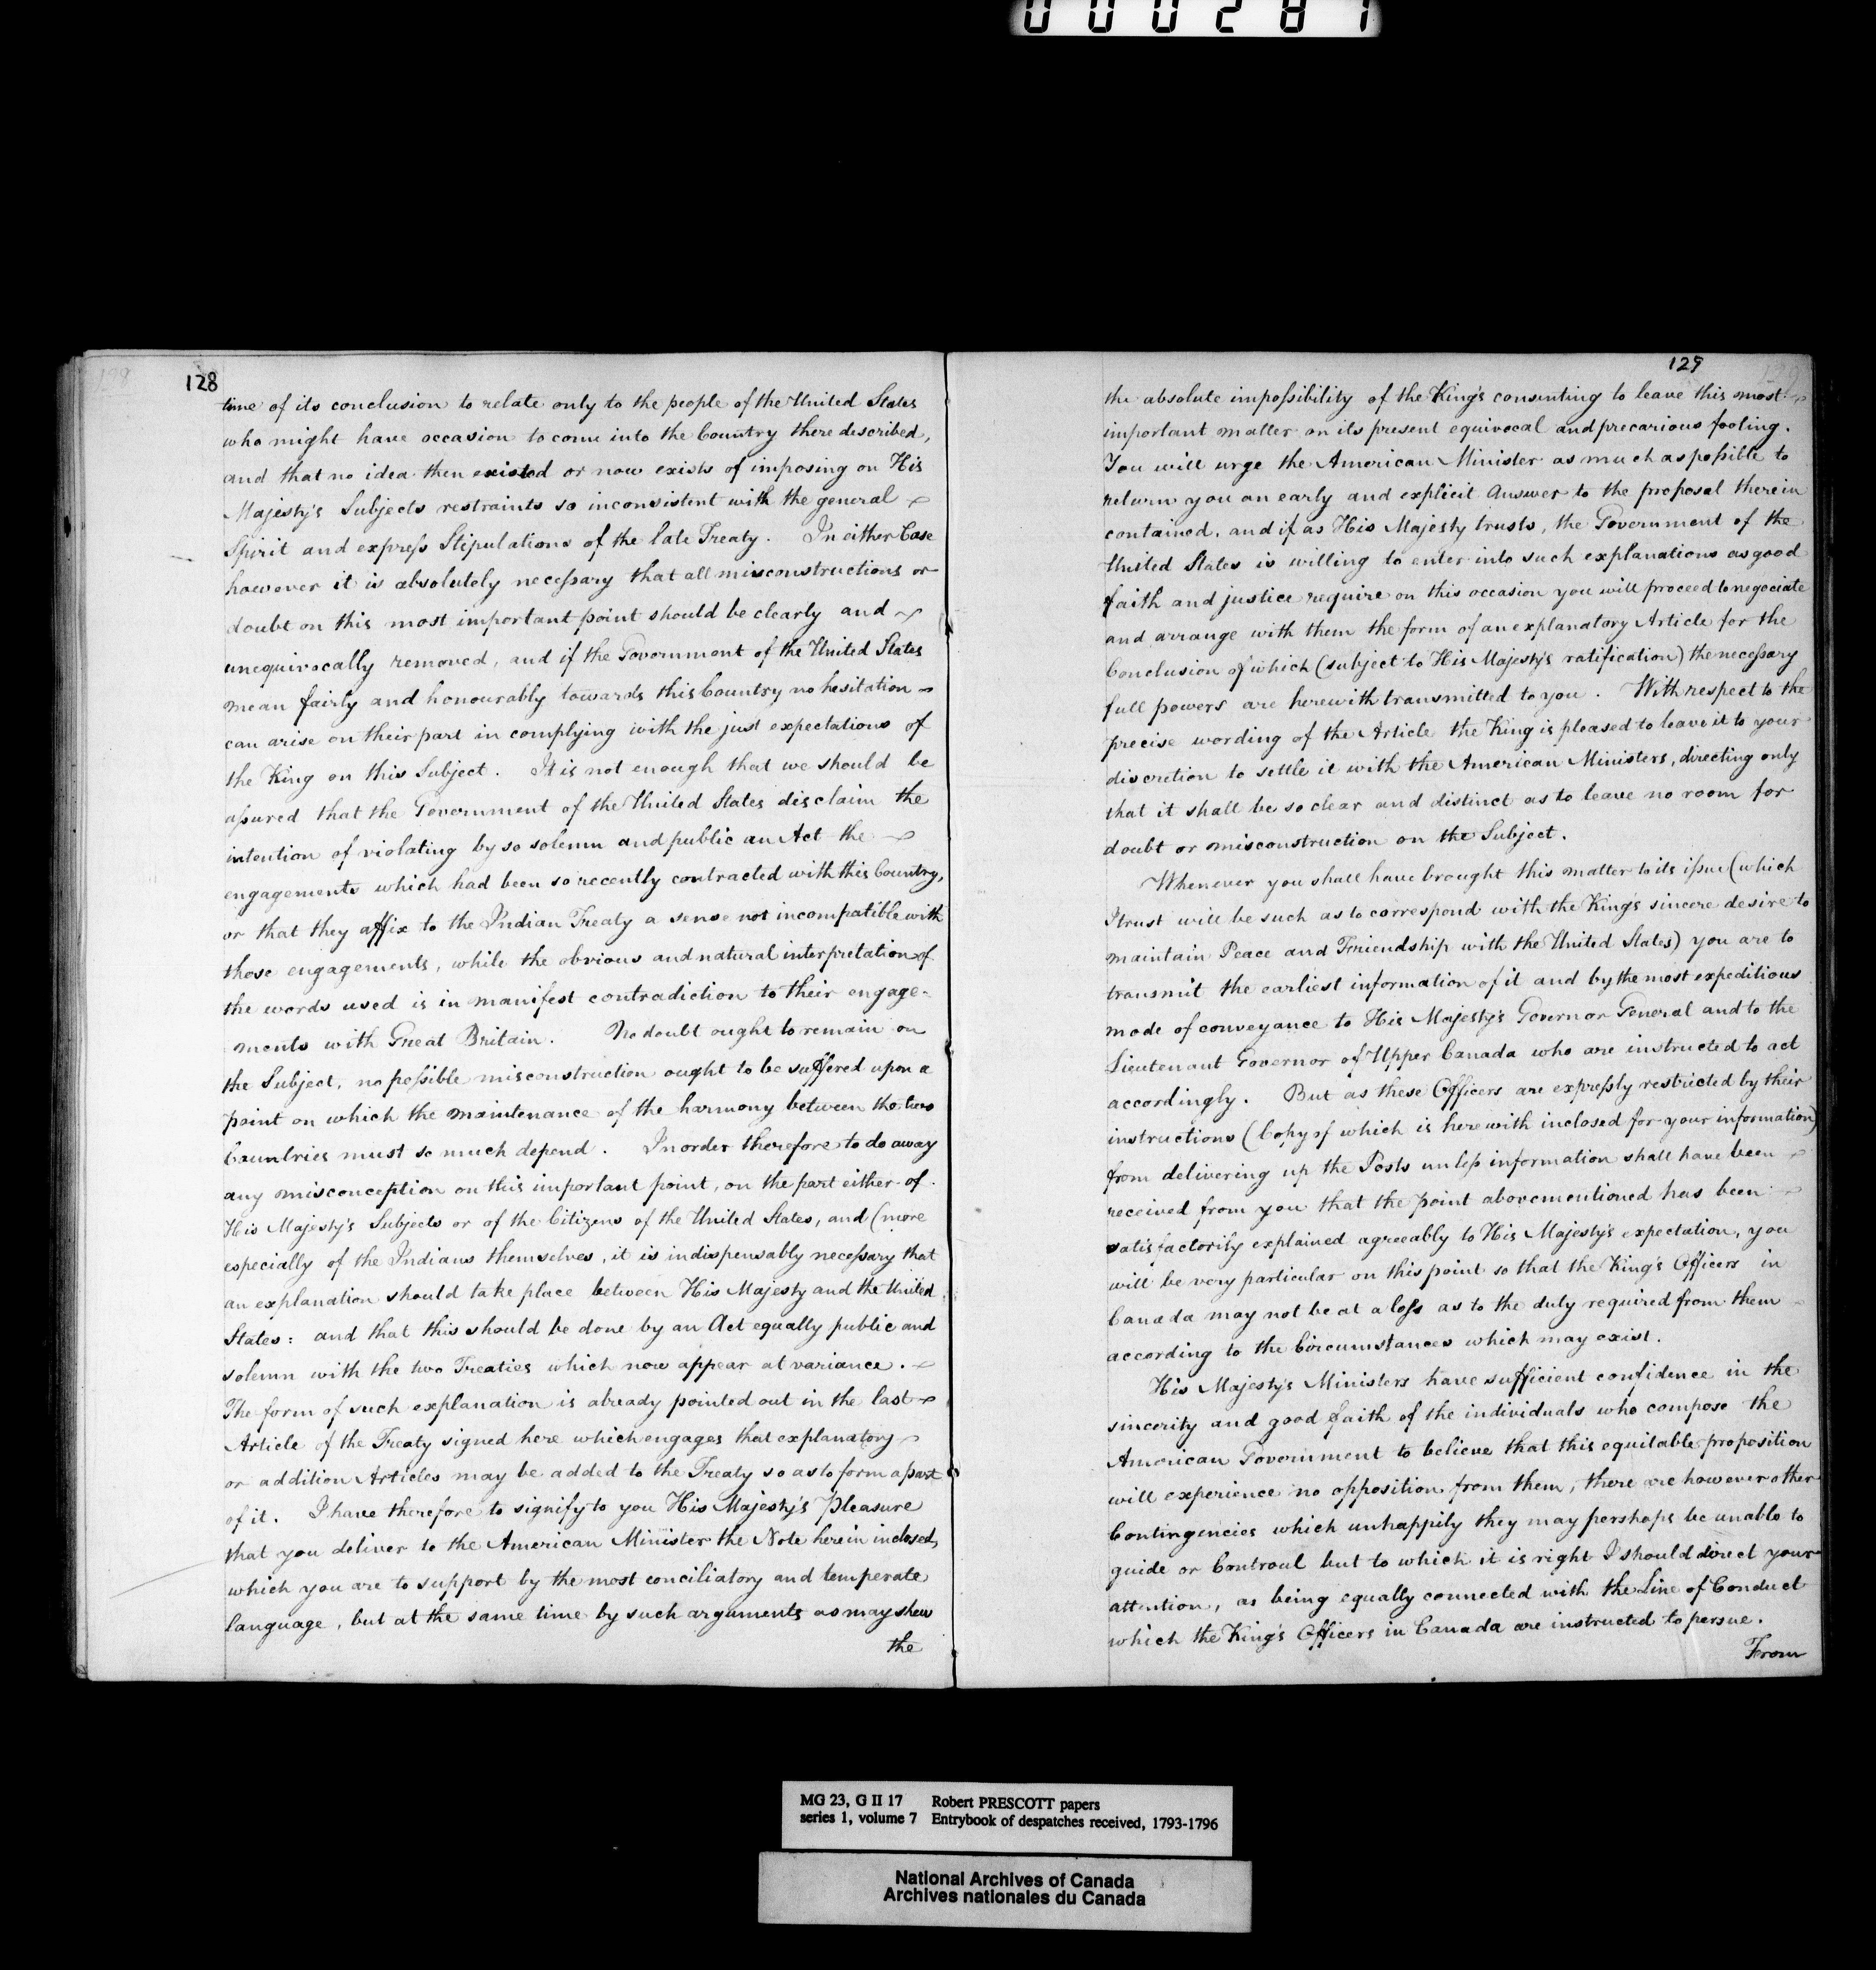 000287
128
time of its conclusion to relate only to the people of the United States
who might have occasion to come into the Country there described,
and that no idea then existed or now exists of imposing on His
Majesty's Subjects restraints so inconsistent with the general
Spirit and express Stipulations of the late Treaty. In either Case
however it is absolutely necessary that all misconstructions or
doubt on this most important point should be clearly and
unequivocally removed, and if the Government of the United States
mean fairly and honourably towards this Country no hesitation
can arise on their part in complying with the just expectations of
the King on this Subject. It is not enough that we should be
assured that the Government of the United States disclaim the
intention of violating by so solemn and public an Act the
engagements which had been so recently contracted with this Country,
or that they affix to the Indian Treaty a sense not incompatible with
those engagements, while the obvious and natural interpretation of
the words used is in manifest contradiction to their engage-
ments with Great Britain. No doubt ought to remain on
the Subject, no possible misconstruction ought to be suffered upon a
point on which the maintenance of the harmony between the two
Countries must so much depend. In order therefore to do away
any misconception on this important point, on the part either of
His Majesty's Subjects or of the Citizens of the United States, and (more
especially of the Indians themselves, it is indispensably necessary that
an explanation should take place between His Majesty and the United
States: and that this should be done by an Act equally public and
solemn with the two Treaties which now appear at variance.
The form of such explanation is already pointed out in the last
Article of the Treaty signed here which engages that explanatory
or addition Articles may be added to the Treaty so as to form a part
of it. I have therefore to signify to you His Majesty's Pleasure
that you deliver to the American Minister the Note herein inclosed,
which you are to support by the most conciliatory and temperate
language, but at the same time by such arguments as may shew
the
129
the absolute impossibility of the King's consenting to leave this most
important matter on its present equivocal and precarious footing.
You will urge the American Minister as much as possible to
return you an early and explicit Answer to the proposal therein
contained, and if as His Majesty trusts, the Government of the
United States is willing to enter into such explanations as good
faith and justice require on this occasion you will proceed to negociate
and arrange with them the form of an explanatory Article for the
Conclusion of which (subject to His Majesty's ratification) the necessary
full powers are herewith transmitted to you. With respect to the
precise wording of the Article the King is pleased to leave it to your
discretion to settle it with the American Ministers, directing only
that it shall be so clear and distinct as to leave no room for
doubt or misconstruction on the Subject.
Whenever you shall have brought this matter to its issue (which
I trust will be such as to correspond with the King's sincere desire to
maintain Peace and Friendship with the United States) you are to
transmit the earliest information of it and by the most expeditious
mode of conveyance to His Majesty's Governor General and to the
Lieutenant Governor of Upper Canada who are instructed to act
accordingly. But as these Officers are expressly restricted by their
instructions (Copy of which is herewith inclosed for your information)
from delivering up the Posts unless information shall have been
received from you that the point abovementioned has been
satisfactorily explained agreeably to His Majesty's expectation, you
will be very particular on this point so that the King's Officers in
Canada may not be at a loss as to the duty required from them
according to the Circumstances which may exist.
His Majesty's Ministers have sufficient confidence in the
sincerity and good faith of the individuals who compose the
American Government to believe that this equitable proposition
will experience no opposition from them, there are however other
Contingencies which unhappily they may pershaps be unable to
guide or Controul but to which it is right I should direct your
attention, as being equally connected with the Line of Conduct
which the King's Officers in Canada are instructed to persue.
From
MG 23, G II 17 Robert PRESCOTT papers
series 1, volume 7 Entrybook of despatches received, 1793-1796
National Archives of Canada
Archives nationales du Canada